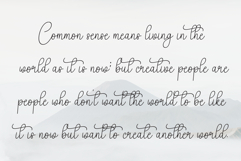 Common sense means living in the
world as it is now; but creative people are
people who don't want the world to be like
it is now but want to create another world.